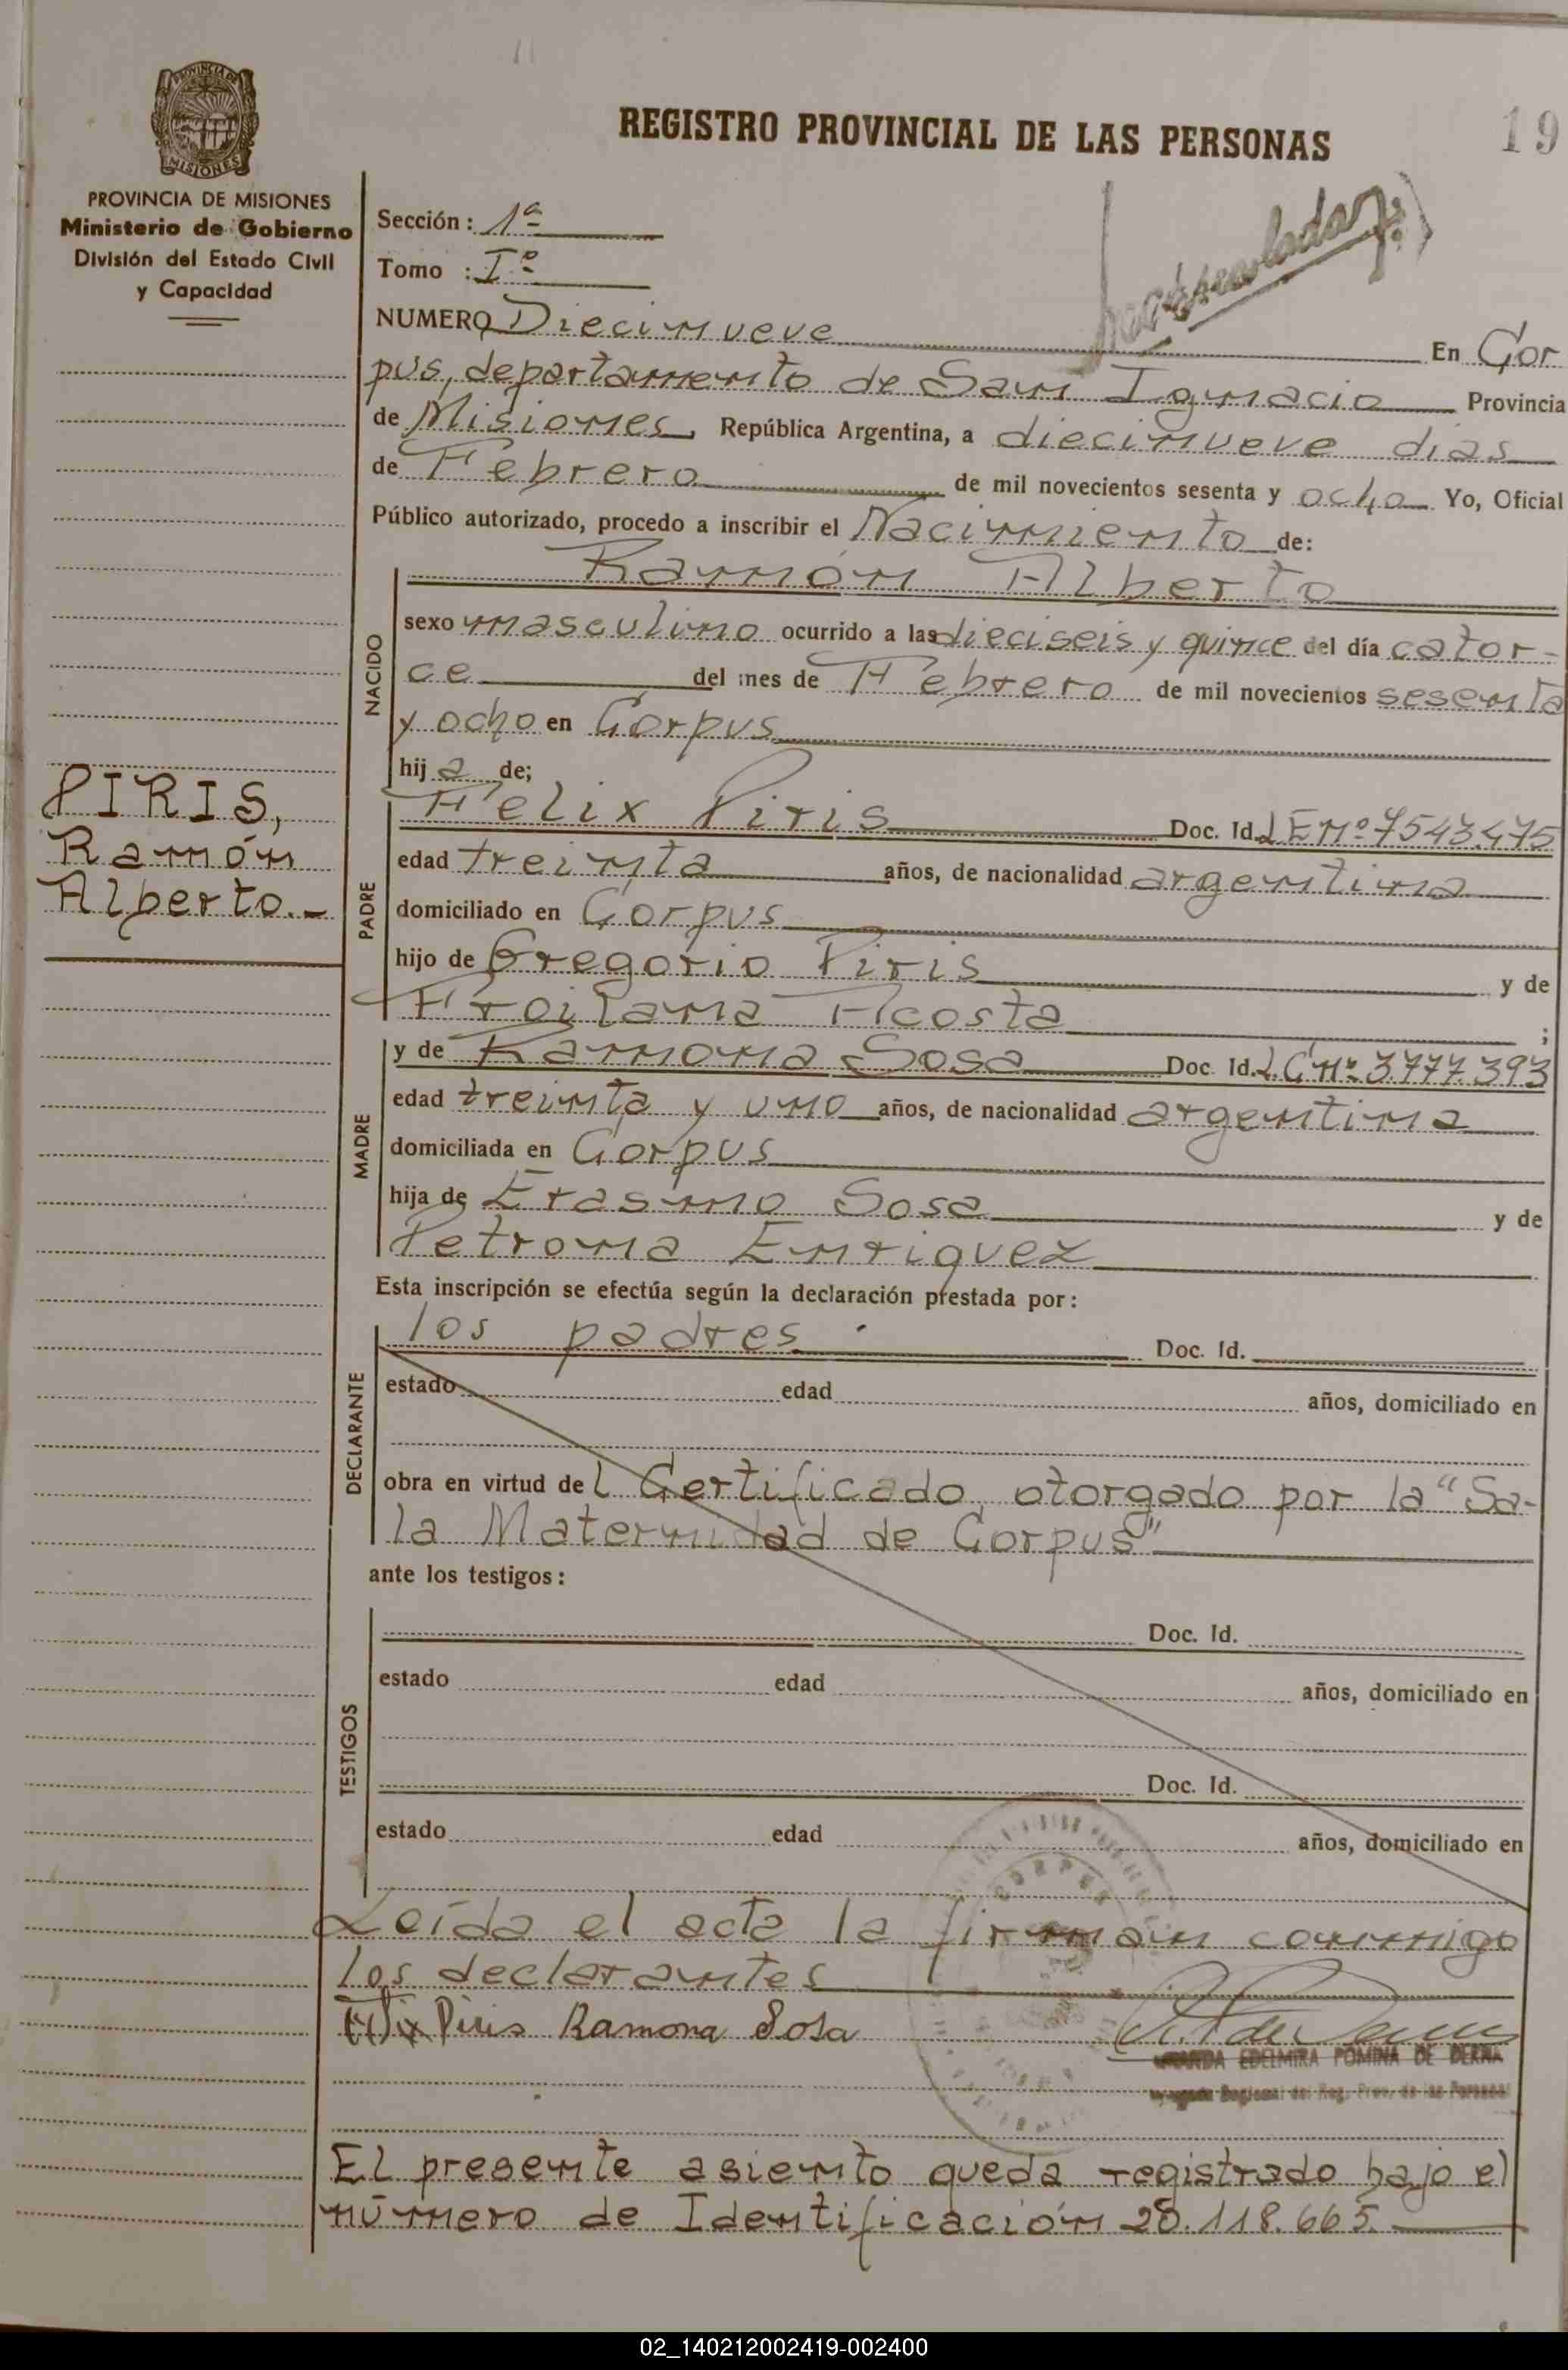 REGISTRO PROVINCIAL DE LAS PERSONAS
19
PROVINCIA DE MISIONES
PROVINCIA DE MISIONES
Ministerio de Gobierno
División del Estado Civil
y Capacidad
Sección: 1ª
Tomo : Iº
NUMERO Diecinueve En Cor
pus, departamento de San Ignacio Provincia
de Misiones, República Argentina, a diecinueve dias
de Febrero de mil novecientos sesenta y ocho Yo, Oficial
Público autorizado, procedo a inscribir el Nacimiento de:
Ramón Alberto
NACIDO
sexo masculino ocurrido a las dieciseis y quince del día cator-
ce del mes de Febrero de mil novecientos sesenta
y ocho en Corpus
hij o de;
PIRIS,
Ramón
Alberto.-
PADRE
Felix Piris Doc. Id. LE Nº 7543.475
edad treinta años, de nacionalidad argentina
domiciliado en Corpus
hijo de Gregorio Piris y de
Froilana Acosta ;
MADRE
y de Ramona Sosa Doc. Id. L.C Nº 3.777.393
edad treinta y uno años, de nacionalidad argentina
domiciliada en Corpus
hija de Erasmo Sosa y de
Petrona Enriquez
Esta inscripción se efectúa según la declaración prestada por:
DECLARANTE
los padres Doc. Id.
estado edad años, domiciliado en
obra en virtud de l Certificado otorgado por la "Sa-
la Maternidad de Corpus"
ante los testigos:
TESTIGOS
Doc. Id.
estado edad años, domiciliado en
Doc. Id.
estado edad años, domiciliado en
Leída el acta la firman conmigo
los declarantes
Felix Piris Ramona Sosa
EDELMIRA POMINA DE
El presente asiento queda registrado bajo el
número de Identificación 20.118.665.
02_140212002419-002400